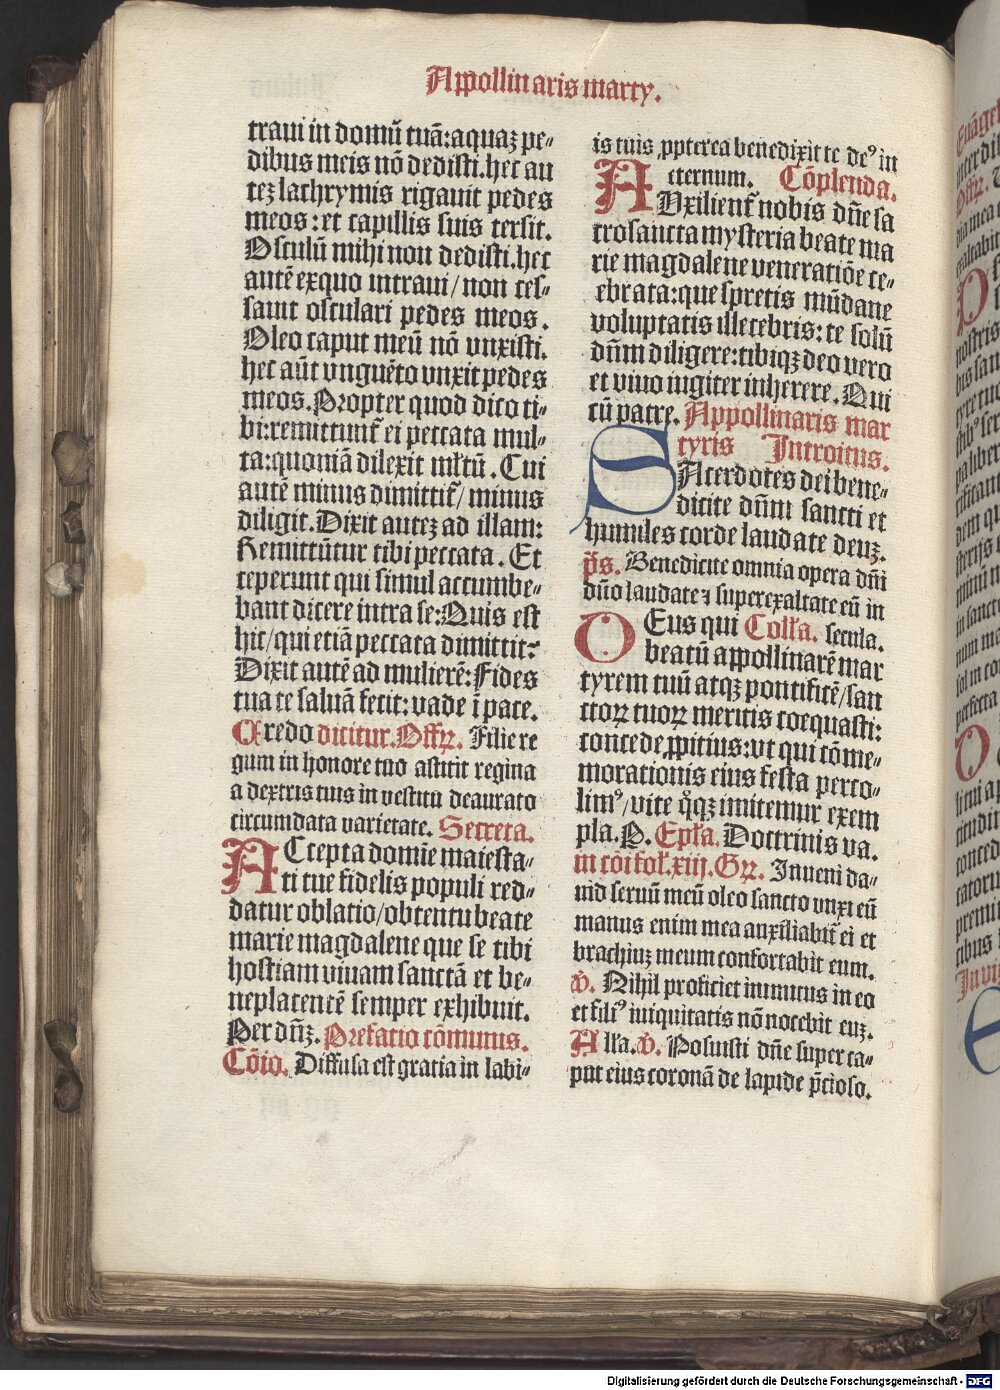 Appollinaris marty.
traui in domū tuā: aquaȝ pe⸗
dibus meis nō dedisti. hec au
teȝ lachrymis rigauit pedes
meos: et capillis suis tersit.
Osculū mihi non dedisti. hec
autē exquo intraui / non ces⸗
sauit osculari pedes meos.
Oleo caput meū nō vnxisti.
hec aūt vnguēto vnxit pedes
meos. Propter quod dico ti⸗
bi: remittunt᷑ ei peccata mul⸗
ta: quoniā dilexit mltū. Cui
autē minus dimittit᷑ / minus
diligit. Dixit auteȝ ad illam:
Remittūtur tibi peccata. Et
ceperunt qui simul accumbe⸗
bant dicere intra se: Quis est
hic / qui etiā peccata dimittit?
Dixit autē ad mulierē: Fides
tua te saluā fecit: vade ī pace.
Credo dicitur. Offꝝ. Filie re
gum in honore tuo astitit regina
a dextris tuis in vestitu deaurato
circumdata varietate. Secreta.
ACcepta domīe maiesta⸗
ti tue fidelis populi red⸗
datur oblatio / obtentu beate
marie magdalene que se tibi
hostiam viuam sanctā et be⸗
neplacentē semper exhibuit.
Per dn̄ȝ. Prefatio cōmunis.
Cōio. Diffusa est gratia in labi⸗
is tuis ꝓpterea benedixit te deꝰ in
eternum. Cōplenda.
AUxilient᷑ nobis dn̄e sa
crosancta mysteria beate ma
rie magdalene veneratiōe ce⸗
lebrata: que spretis mūdane
voluptatis illecebris: te solū
dn̄m diligere: tibiqȝ deo vero
et viuo iugiter inherere. Qui
cū patre. Appollinaris mar
tyris Introitus.
SAcerdotes dei bene⸗
dicite dn̄m sancti et
humiles corde laudate deuȝ.
p̄s. Benedicite omnia opera dn̄i
dn̄o laudate ⁊ superexaltate eū in
DEus qui Colla. secula.
beatū appollinarē mar
tyrem tuū atqȝ pontificē / san
ctoꝝ tuoꝝ meritis coequasti:
concede ꝓpitius: vt qui cōme⸗
morationis eius festa perco⸗
limꝰ / vite qͦqȝ imitemur exem
pla. P. Epla. Doctrinis va.
in cōi fol. xiij. Gꝝ. Inueni da⸗
uid seruū meū oleo sancto vnxi eū
manus enim mea auxiliabit᷑ ei et
brachiuȝ meum confortabit eum.
℣. Nihil proficiet inimicus in eo
et filiꝰ iniquitatis nō nocebit euȝ.
Alla. ℣. Posuisti dn̄e super ca⸗
put eius coronā de lapide p̄cioso.
Digitalisierung gefördert durch die Deutsche Forschungsgemeinschaft - DFG